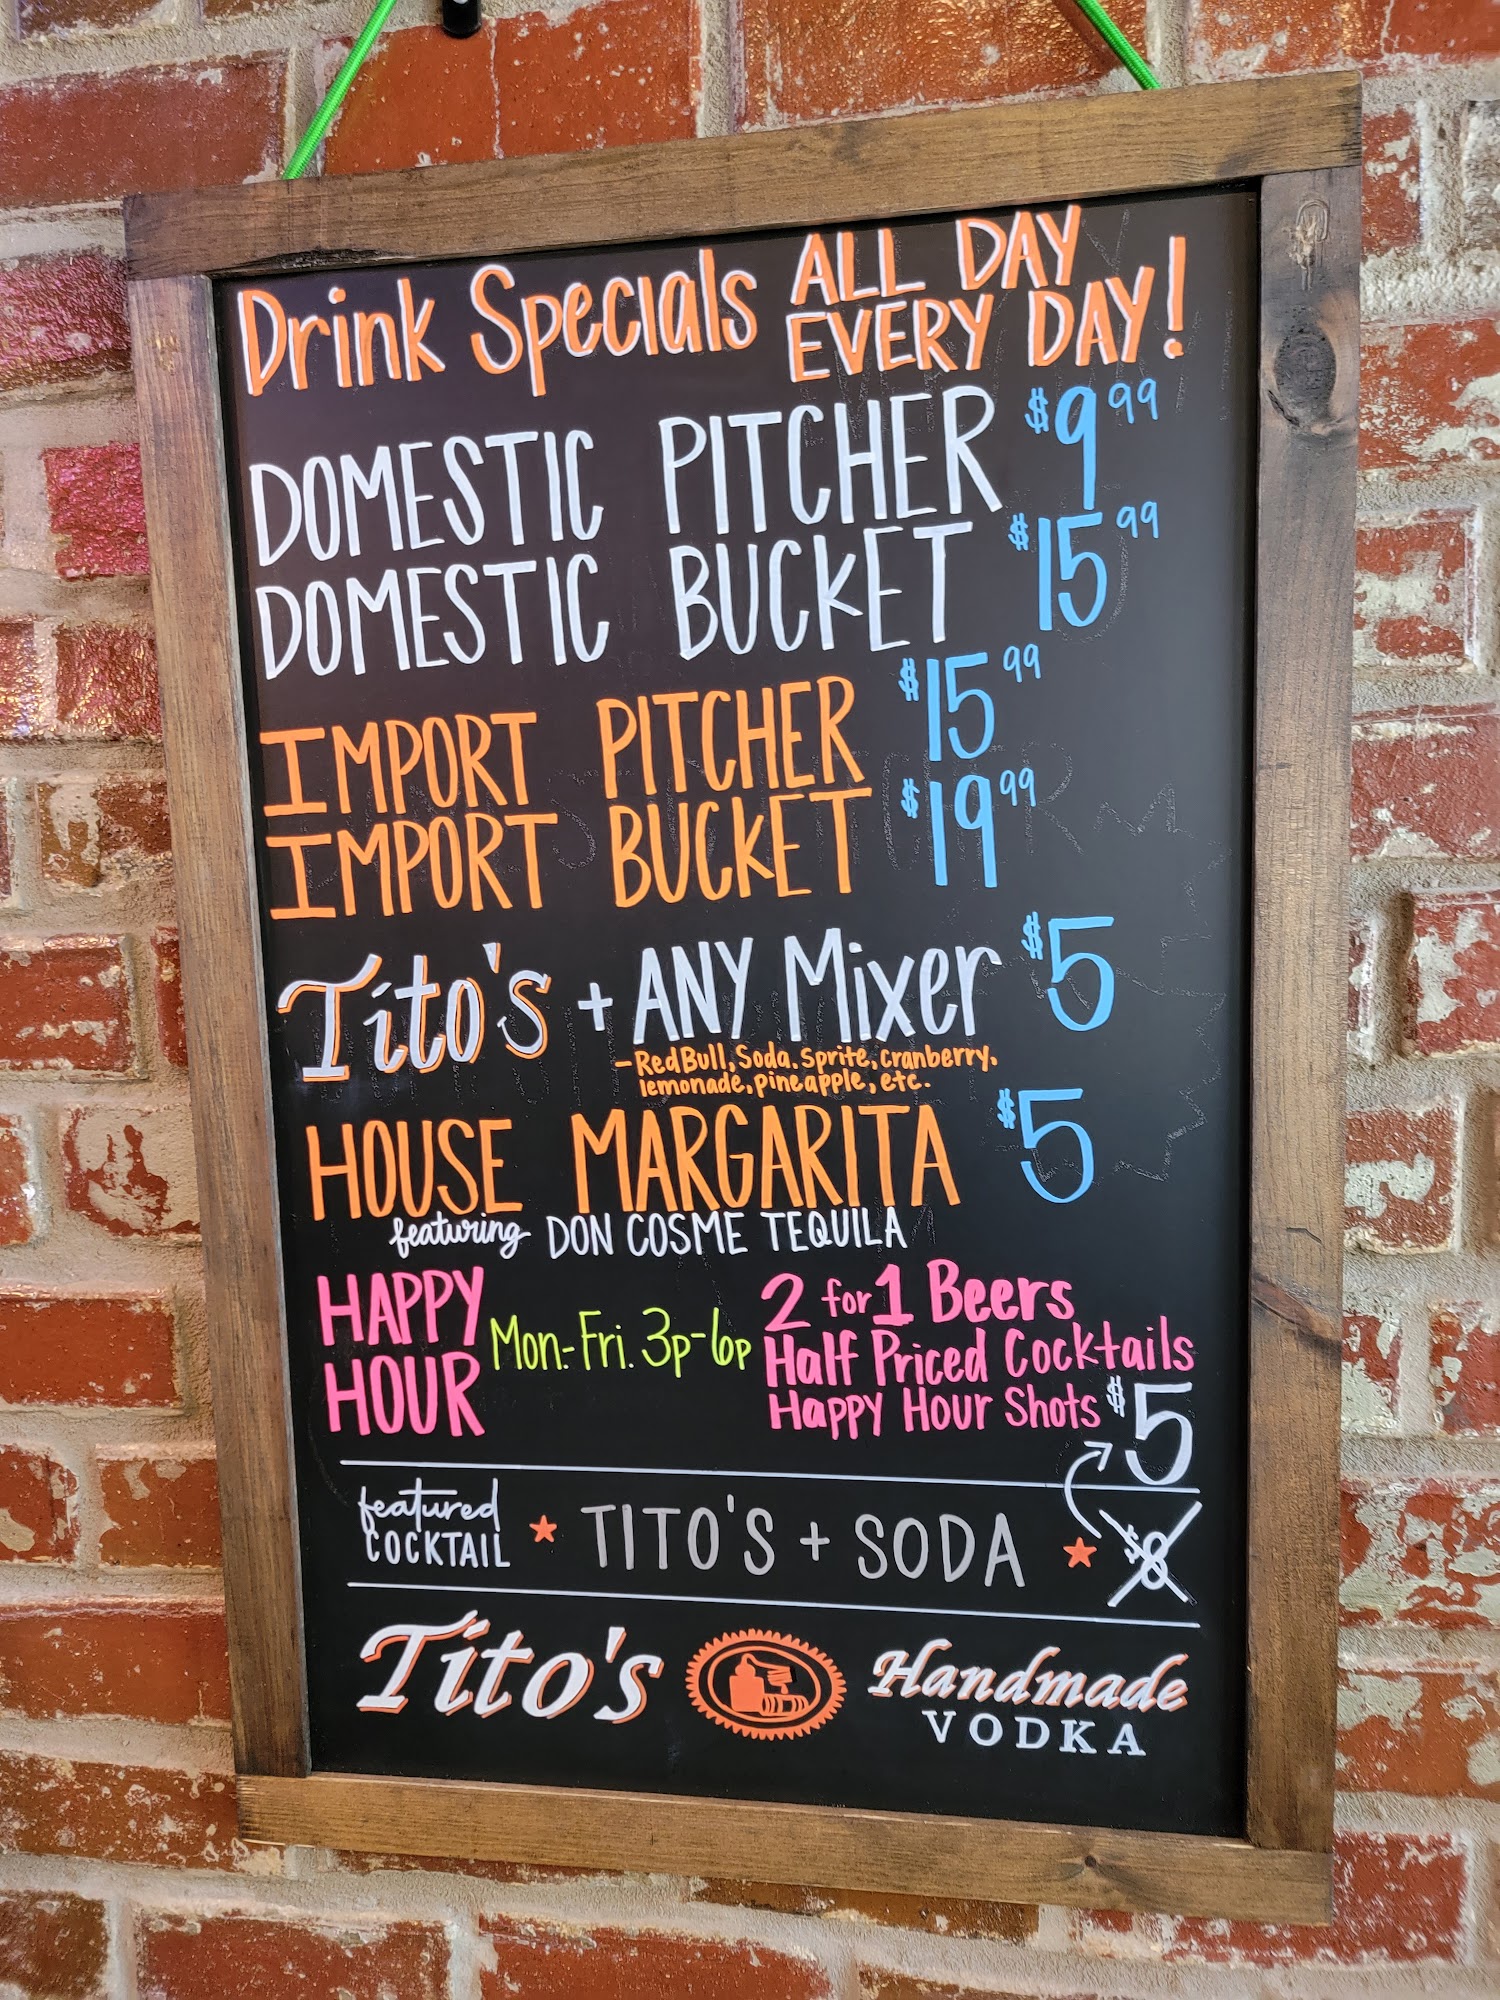 Drink Specials ALL DAY
EVERY DAY!
DOMESTIC PITCHER $9.99
DOMESTIC BUCKET $15.99
IMPORT PITCHER $15.99
IMPORT BUCKET $19.99
Tito's + ANY Mixer $5
- RedBull, Soda, Sprite, Cranberry,
lemonade, pineapple, etc.
HOUSE MARGARITA $5
featuring DON COSME TEQUILA
HAPPY HOUR Mon.-Fri. 3p-6p
2 for 1 Beers
Half Priced Cocktails
Happy Hour Shots $5
featured COCKTAIL ★ TITO'S + SODA ★ $8
Tito's Handmade
VODKA